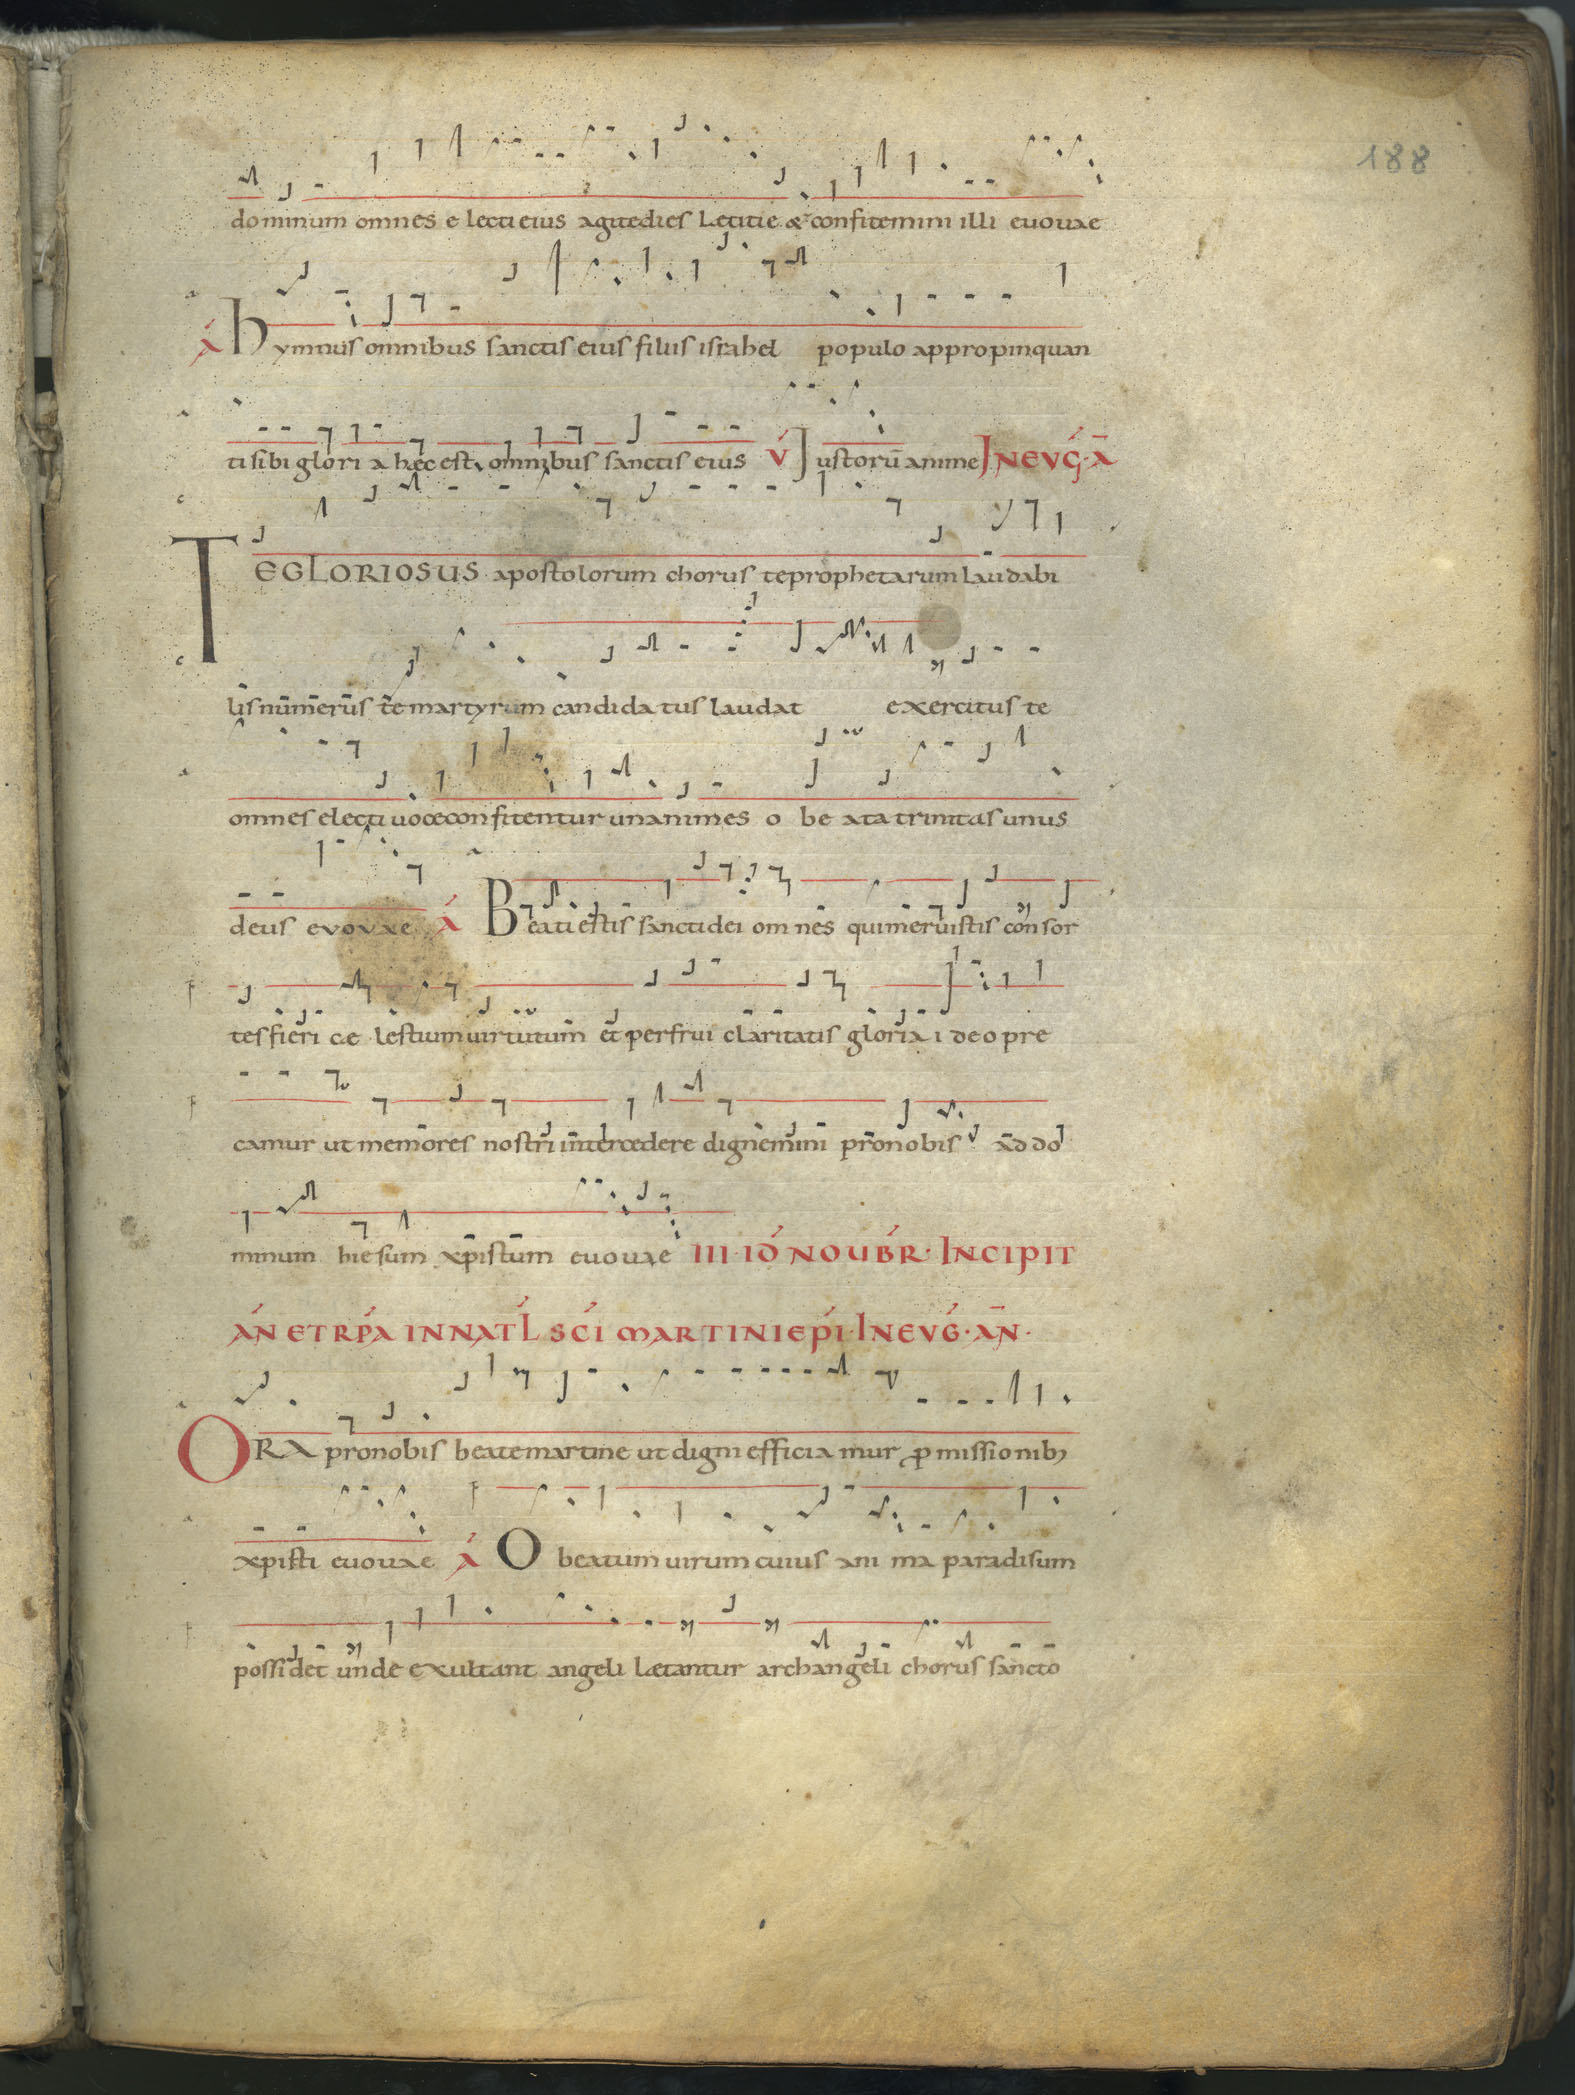 188
dominum omnes e lecti eius agite dies Letitie & confitemini illi euouae
A hymnus omnibus sanctis eius filiis israhel populo appropinquan
ti sibi glori a hec est omnibus sanctis eius V Iustorū anime IN EVG. A
TE GLORIOSUS apostolorum chorus te prophetarum laudabi
lis numerus te martyrum candida tus laudat exercitus te
omnes electi uoce confitentur unanimes o be ata trinitas unus
deus evovae A Beati estis sancti dei om nes qui meruistis con sor
tes fieri ce lestium uirtutum et perfrui claritatis gloria i deo pre
camur ut memores nostri intercedere dignemini pro nobis ad do
minum hiesum xpistum euouae III · ID NOUBR · INCIPIT
AN ET RPA IN NATL SCI MARTINI EPI · IN EVG · AN ·
ORA pro nobis beate martine ut digni efficia mur ꝓmissionibꝫ
xpisti euouae A O beatum uirum cuius ani ma paradisum
possidet unde exultant angeli lætantur archangeli chorus sancto